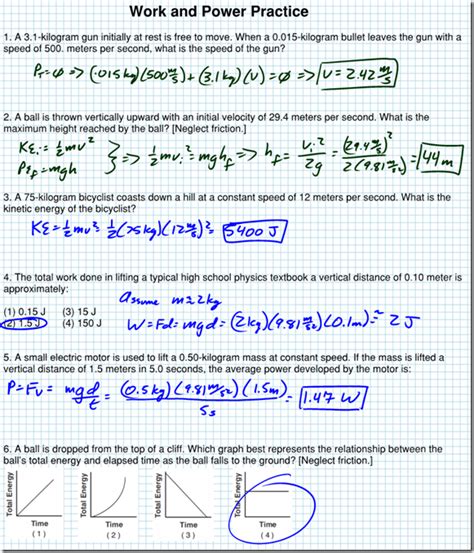 Work and Power Practice
1. A 3.1-kilogram gun initially at rest is free to move. When a 0.015-kilogram bullet leaves the gun with a
speed of 500. meters per second, what is the speed of the gun?
P_T = ∅ => (.015kg)(500 m/s) + (3.1kg)(v) = ∅ => v = 2.42 m/s
2. A ball is thrown vertically upward with an initial velocity of 29.4 meters per second. What is the
maximum height reached by the ball? [Neglect friction.]
KE_i = ½mv²
PE_f = mgh } => ½mv_i² = mgh_f => h_f = v_i²/2g = (29.4 m/s)²/2(9.81 m/s²) = 44m
3. A 75-kilogram bicyclist coasts down a hill at a constant speed of 12 meters per second. What is the
kinetic energy of the bicyclist?
KE = ½mv² = ½(75kg)(12 m/s)² = 5400 J
4. The total work done in lifting a typical high school physics textbook a vertical distance of 0.10 meter is
approximately:
Assume m≈2kg
(1) 0.15 J (3) 15 J
(2) 1.5 J (4) 150 J
W = Fd = mgd = (2kg)(9.81 m/s²)(0.1m) ≈ 2 J
5. A small electric motor is used to lift a 0.50-kilogram mass at constant speed. If the mass is lifted a
vertical distance of 1.5 meters in 5.0 seconds, the average power developed by the motor is:
P = Fv = mgd/t = (0.5kg)(9.81 m/s²)(1.5m)/5s = 1.47 W
6. A ball is dropped from the top of a cliff. Which graph best represents the relationship between the
ball's total energy and elapsed time as the ball falls to the ground? [Neglect friction.]
Total Energy Total Energy Total Energy Total Energy
Time Time Time Time
(1) (2) (3) (4)